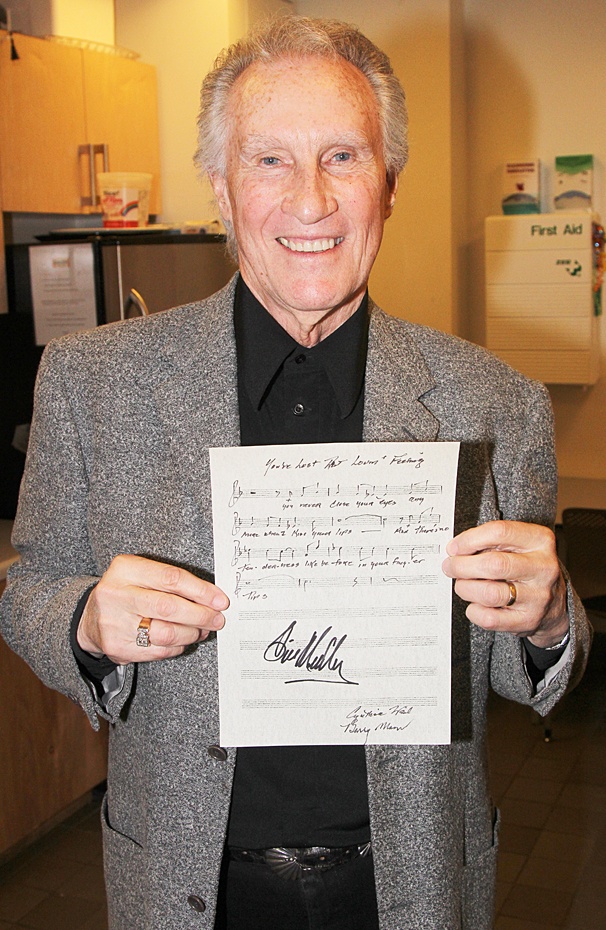 First Aid
You've Lost That Lovin' Feeling
you never close your eyes any
more when I kiss your lips And there's no
ten-der-ness like be-fore in your fing-er
tips
Cynthia Weil
Barry Mann